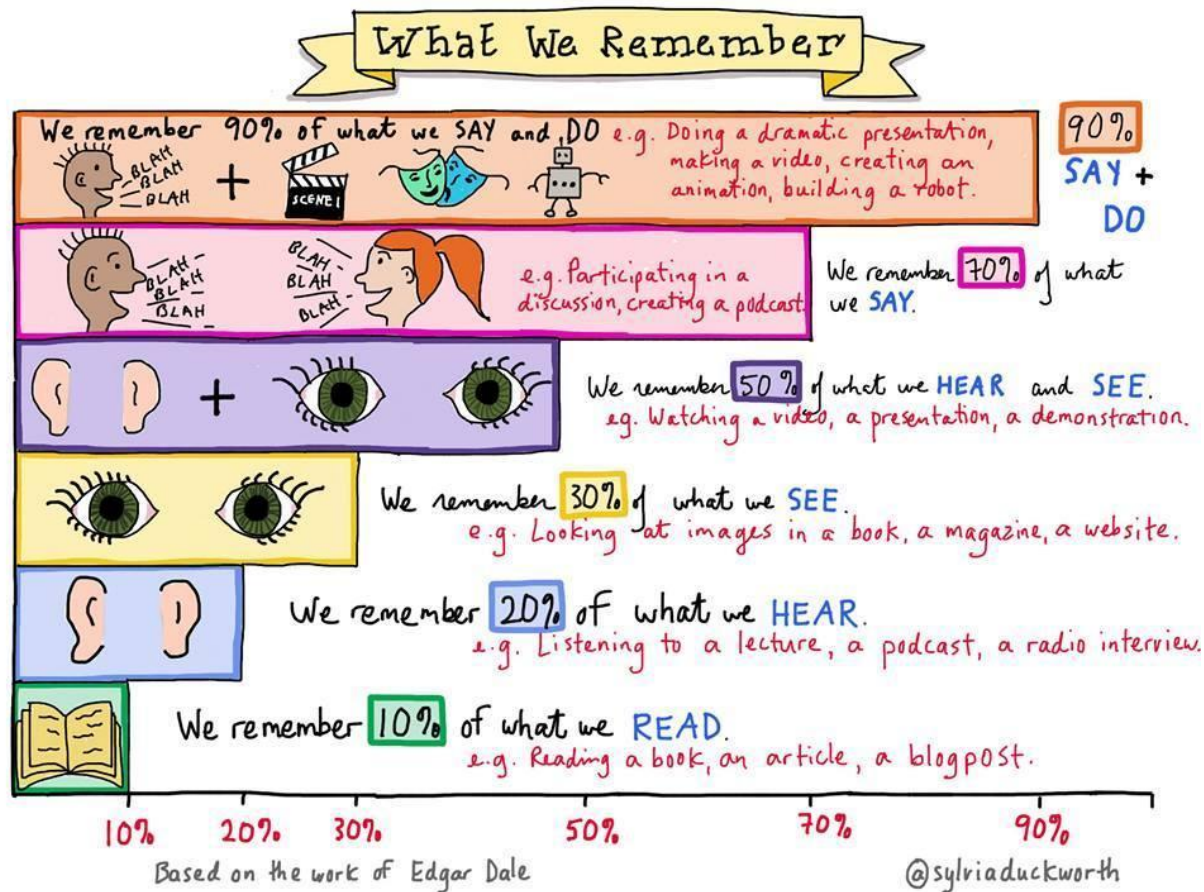 What We Remember
We remember 90% of what we SAY and DO e.g. Doing a dramatic presentation,
making a video, creating an
animation, building a robot.
BLAH
BLAH
BLAH
+
SCENE 1
90%
SAY +
DO
BLAH
BLAH
BLAH
BLAH
BLAH
BLAH
BLAH
e.g. Participating in a
discussion, creating a podcast.
We remember 70% of what
we SAY.
+
We remember 50% of what we HEAR and SEE.
eg. Watching a video, a presentation, a demonstration.
We remember 30% of what we SEE.
e.g. Looking at images in a book, a magazine, a website.
We remember 20% of what we HEAR.
e.g. Listening to a lecture, a podcast, a radio interview.
We remember 10% of what we READ.
e.g. Reading a book, an article, a blogpost.
10% 20% 30% 50% 70% 90%
Based on the work of Edgar Dale
@sylviaduckworth